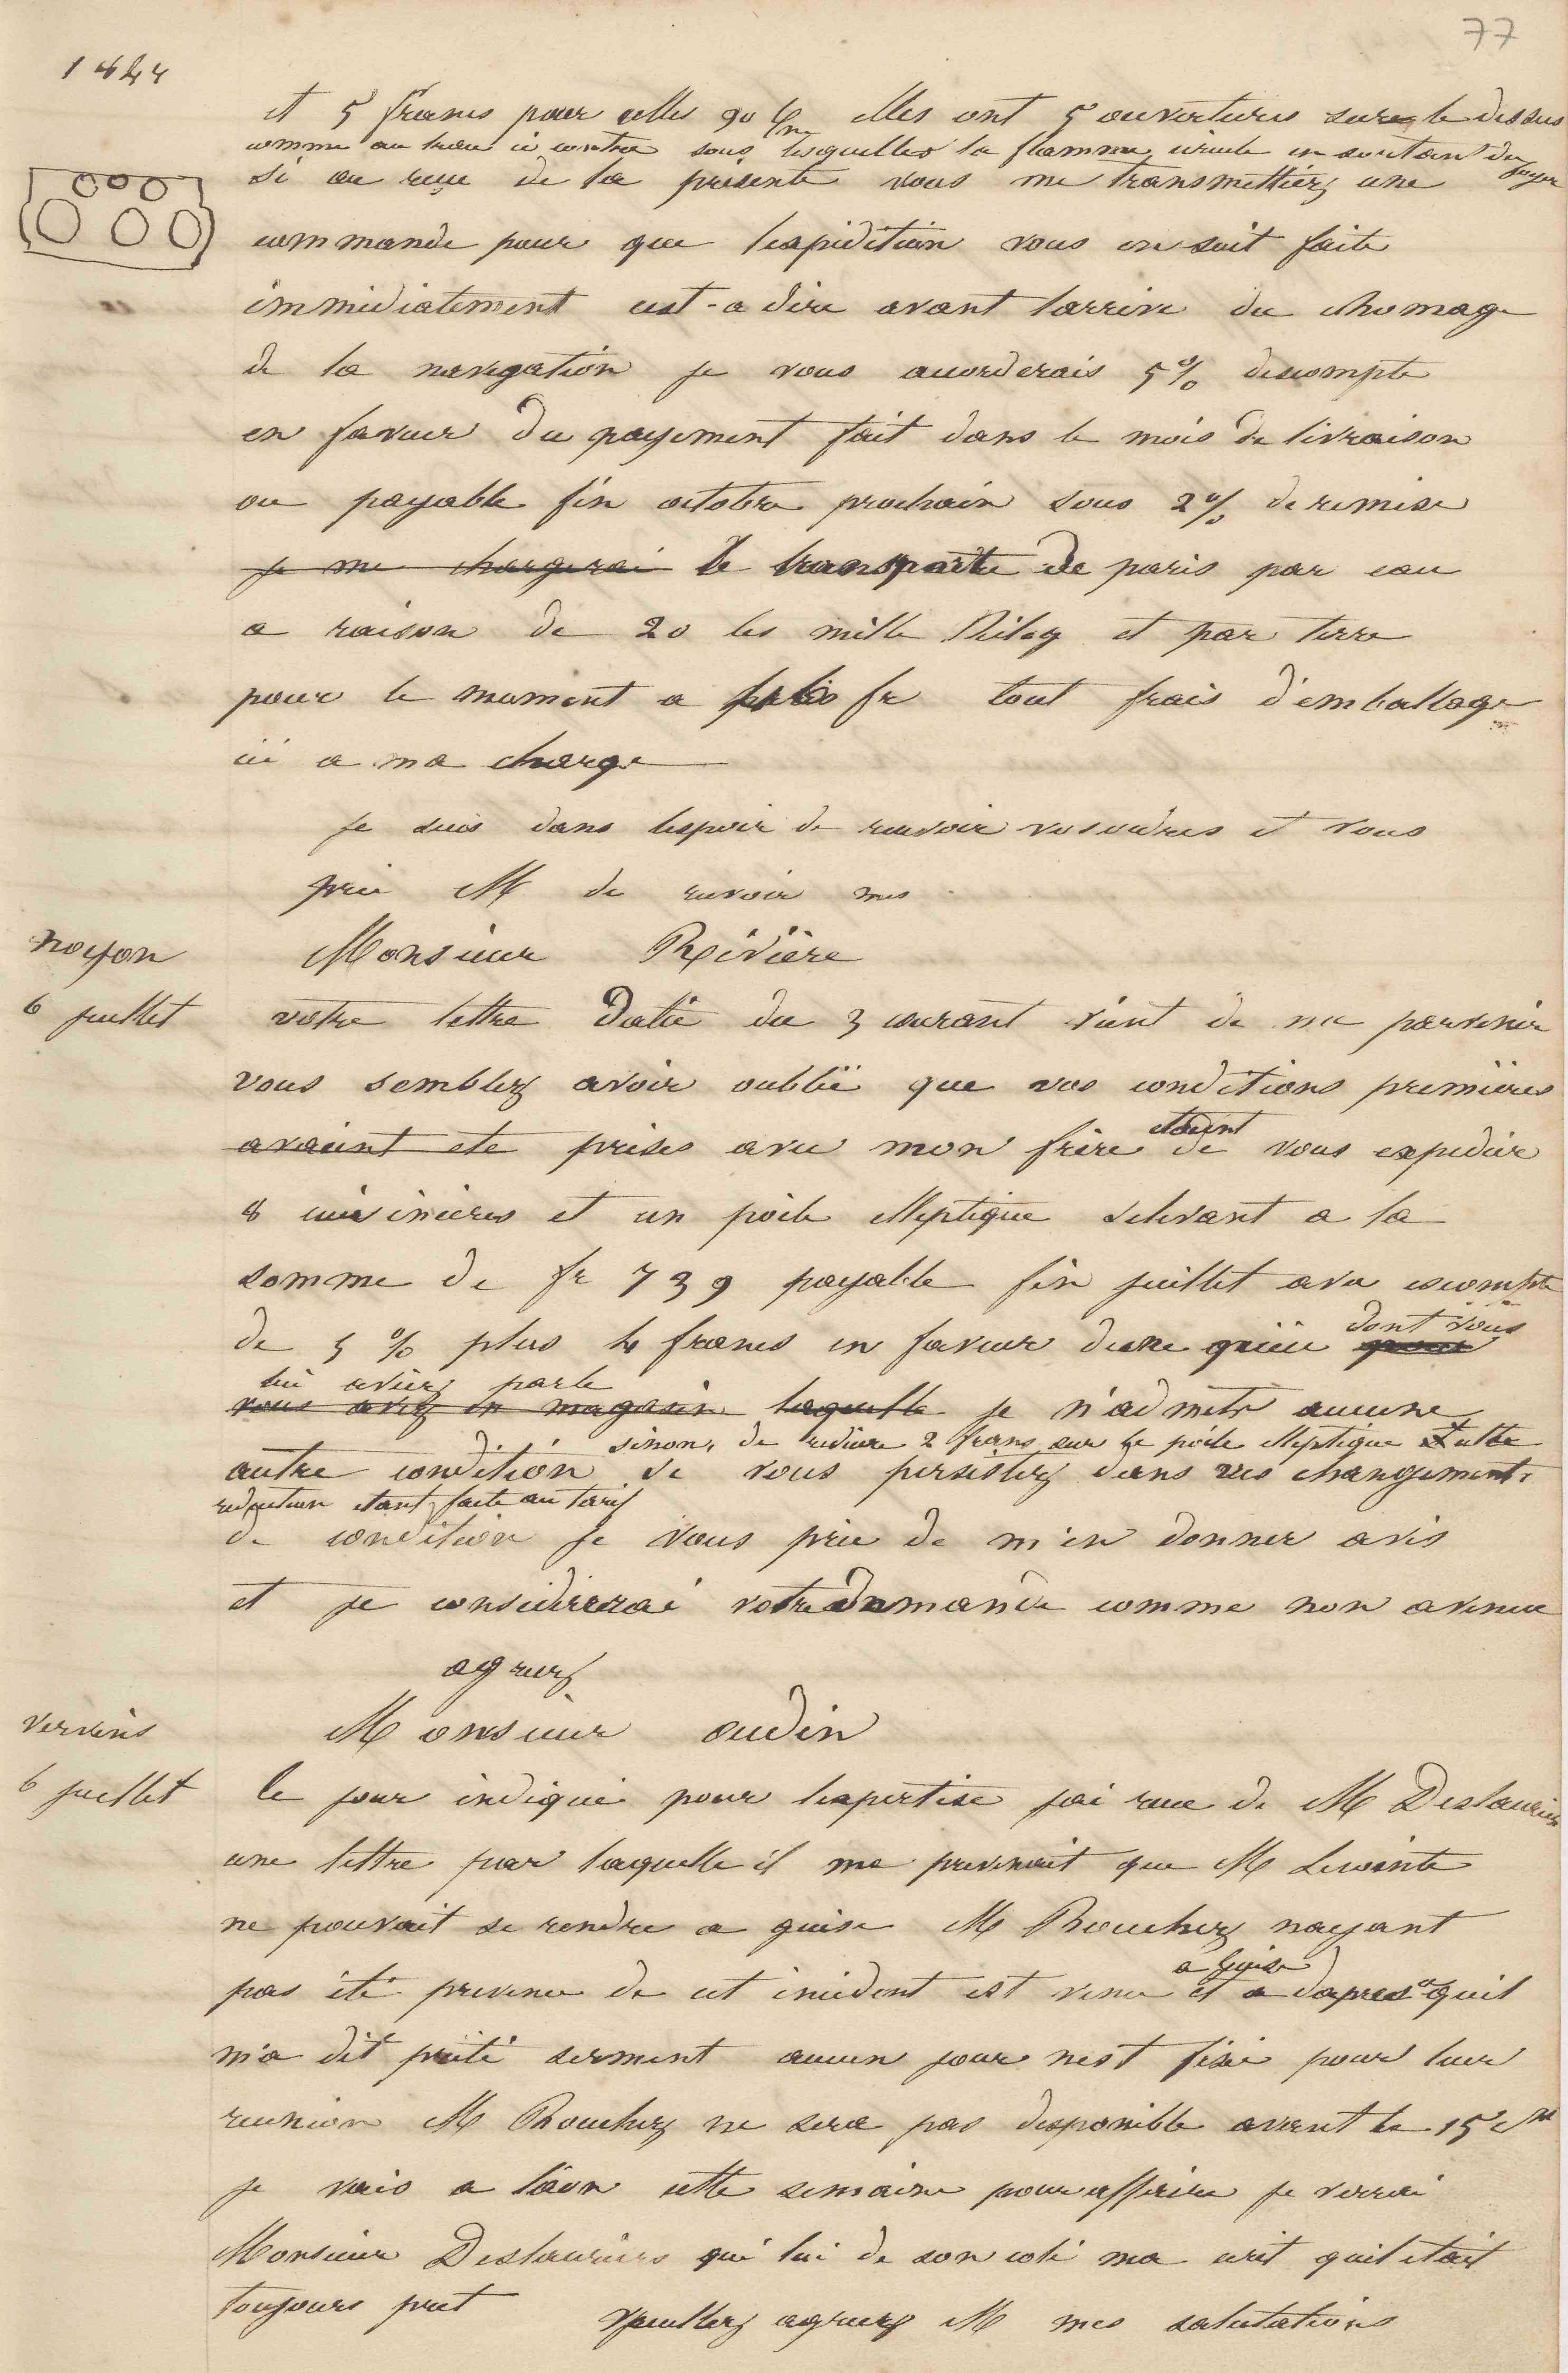 77
1844
et 5 francs pour celles 90 c/m elles ont 5 ouvertures sur le dessus
comme au tracé ci contre sous lesquelles la flamme circule en sortant du foyer
si au reçu de la presente vous me transmettiez une
commande pour que lexpidition vous en soit faite
immidiatement cest-a dire avant larrive du chomage
de la navigation je vous accorderais 5% descompte
en faveur du payement fait dans le mois de livraison
ou payable fin octobre prochain sous 2% de remise
je me chargerai le transporte de paris par eau
a raison de 20 les mille Kilog et par terre
pour le moment a fr tout frais d'emballage
ici a ma charge
je suis dans lespoir de recevoir vos ordres et vous
prie M de recevoir mes
noyon
Monsieur Rivière
6 juillet
votre lettre datée du 3 courant vient de me parvenir
vous semblez avoir oublié que vos conditions premières
avaient ete prises avec mon frère etaient de vous expedier
8 cuisinieres et un poële elleptique selevant a la
somme de fr 739 payable fin juillet avec escompte
de 5 % plus 4 francs en faveur dune pièce dont vous
lui aviez parlé
vous avez en magasin laquelle je n'admets aucune
sinon de reduire 2 francs sur le poële elleptique cette
autre condition si vous persistez dans vos changements
reduction etant faite au tarif
de condition je vous prie de m'en donner avis
et je considererai votre demande comme non avenue
agreez
vervins
Monsieur oudin
6 juillet
le jour indiqué pour lexpertise jai recu de M Deslauriers
une lettre par laquelle il me prevenait que M Lecointe
ne pouvait se rendre a guise M Rouchez nayant
pas été prevenu de cet incident est venu a guise et a dapres ce quil
m'a dit prêté serment aucun jour nest fixé pour leur
reunion M Rouchez ne sera pas disponible avant le 15 ct
je vais a laon cette semaine pour affaire je verrai
Monsieur Deslauriers qui lui de son coté ma ecrit quil etait
toujours pret
veuillez agreez M mes salutations